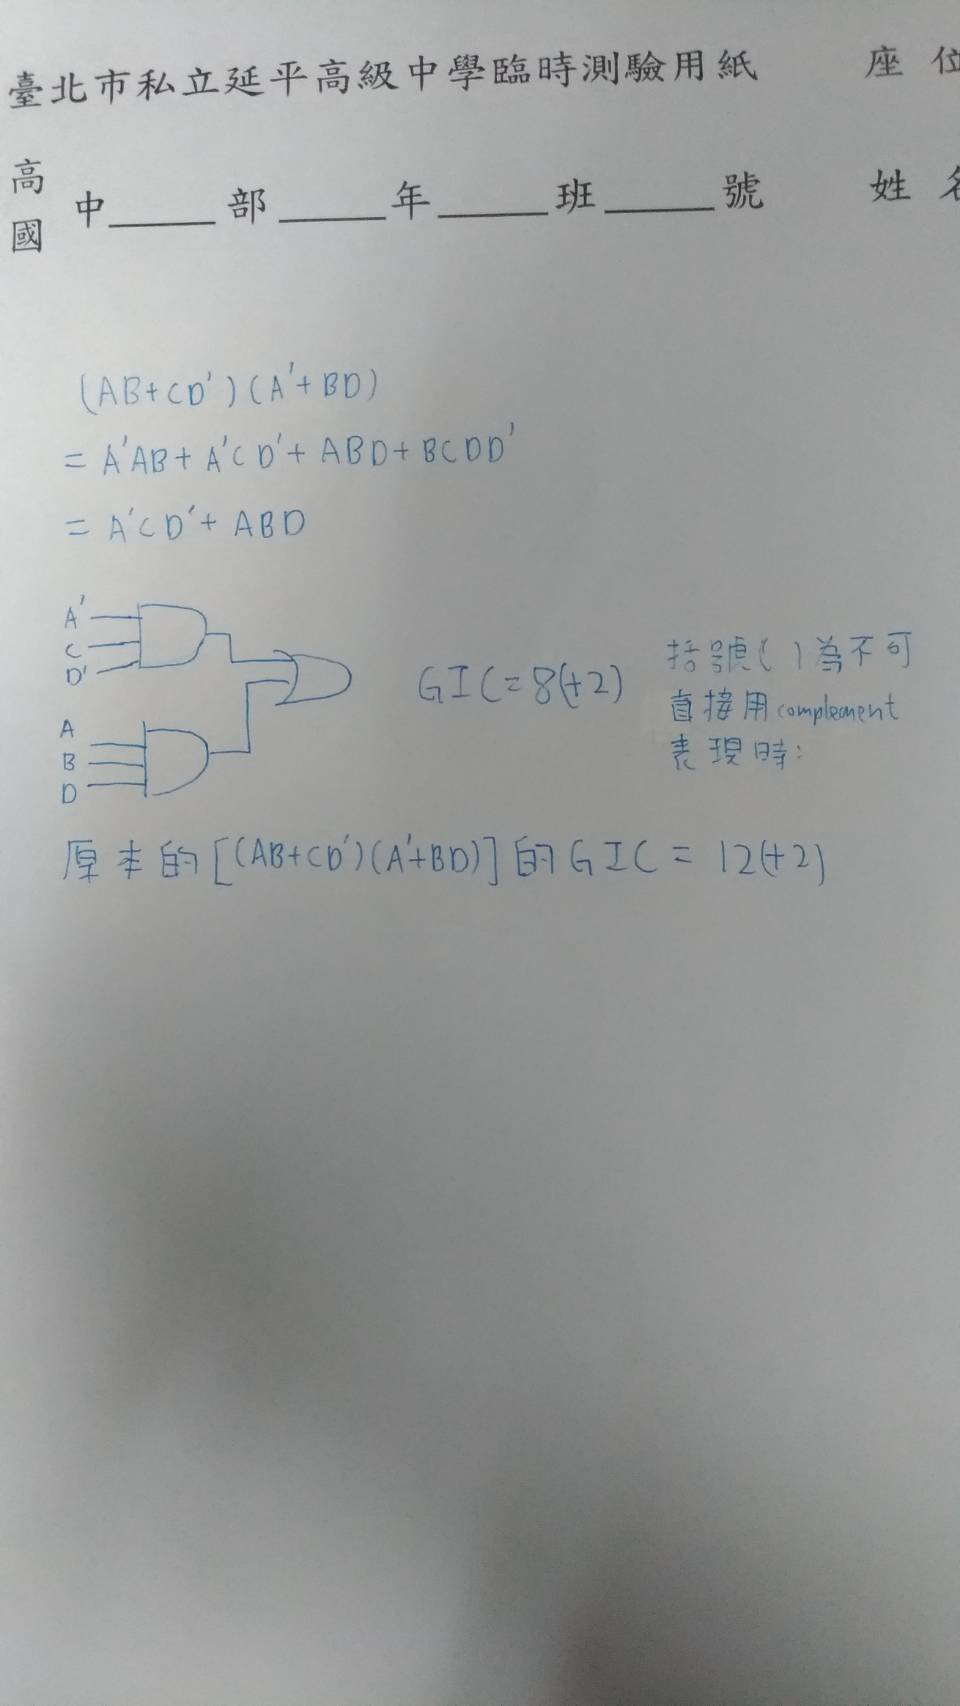 臺北市私立延平高級中學臨時測驗用紙 座位
高
國
中____部____年____班____號 姓名
(AB+CD')(A'+BD)
= A'AB + A'CD' + ABD + BCDD'
= A'CD' + ABD
A'
C
D'
A
B
D
GIC=8(+2)
括號( )為不可
直接用complement
表現時:
原本的[(AB+CD')(A'+BD)]的GIC = 12(+2)